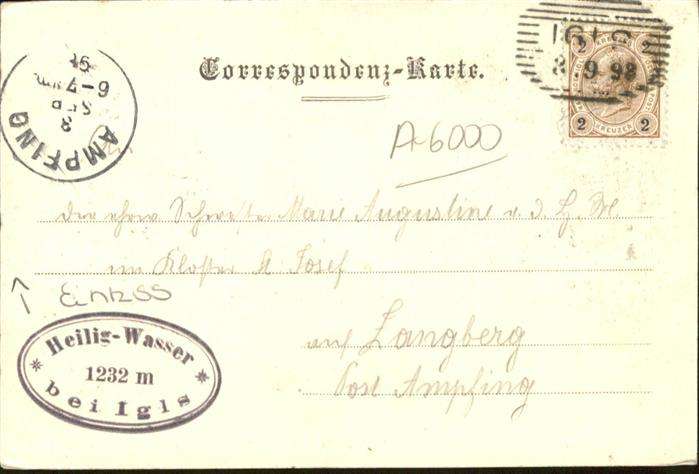 Correspondenz-Karte.
IGLS
8.9.98
2 2
2 KREUZER 2
AMPFING
SEP
6-7
A-6000
Der ehrw. Schwester Marie Augustine v. d. H. M.
im Kloster St. Josef
auf Langberg
Post Ampfing
Heilig-Wasser
1232 m
bei Igls